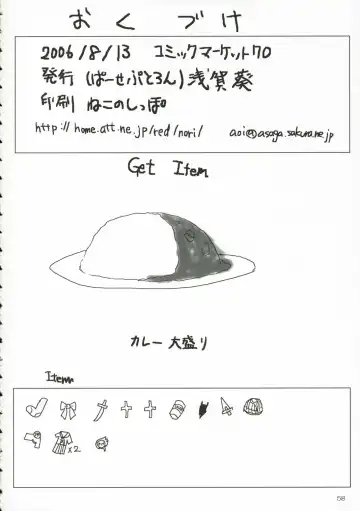 おくづけ
2006/8/13 コミックマーケット70
発行 (ぱーせぷとろん) 浅賀葵
印刷 ねこのしっぽ
http://home.att.ne.jp/red/nori/ aoi@asaga.sakura.ne.jp
Get Item
カレー 大盛り
Item
×2
58